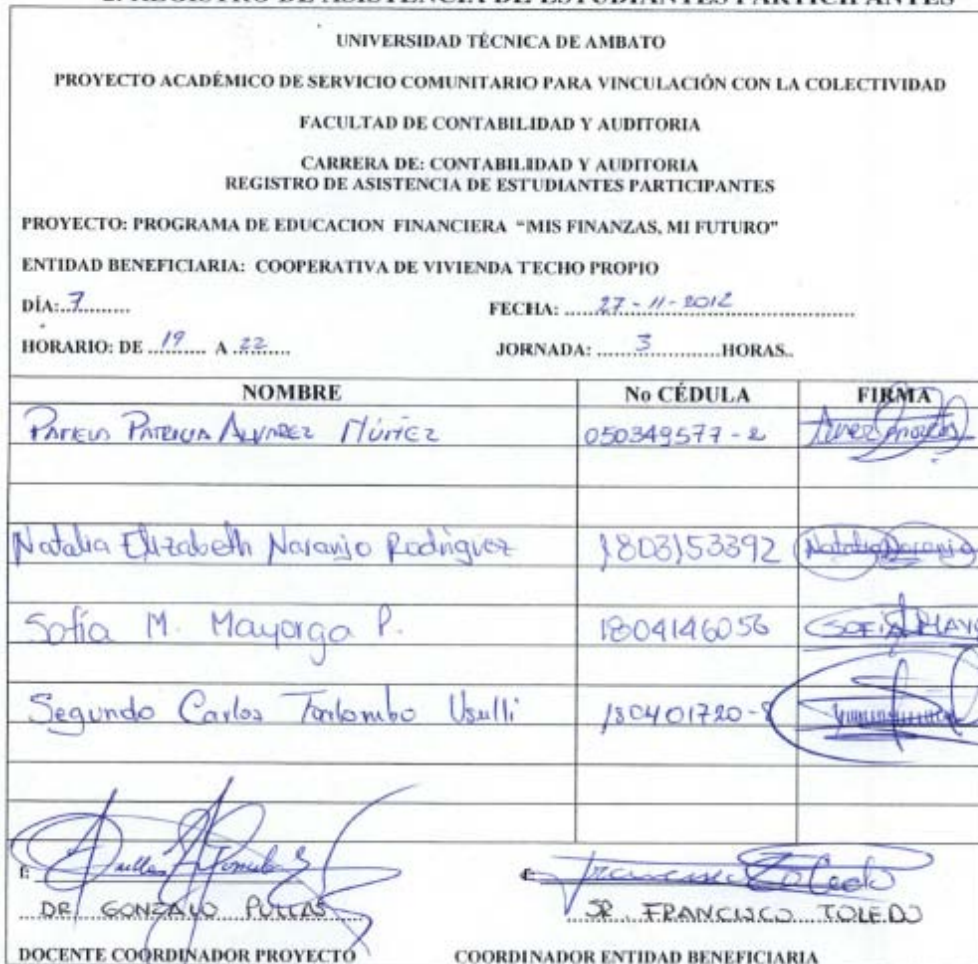 2. REGISTRO DE ASISTENCIA DE ESTUDIANTES PARTICIPANTES
UNIVERSIDAD TÉCNICA DE AMBATO
PROYECTO ACADÉMICO DE SERVICIO COMUNITARIO PARA VINCULACIÓN CON LA COLECTIVIDAD
FACULTAD DE CONTABILIDAD Y AUDITORIA
CARRERA DE: CONTABILIDAD Y AUDITORIA
REGISTRO DE ASISTENCIA DE ESTUDIANTES PARTICIPANTES
PROYECTO: PROGRAMA DE EDUCACION FINANCIERA “MIS FINANZAS, MI FUTURO”
ENTIDAD BENEFICIARIA: COOPERATIVA DE VIVIENDA TECHO PROPIO
DÍA:..7......... FECHA: ......27-11-2012......
HORARIO: DE ...19... A ..22.... JORNADA: .......3.......HORAS..
NOMBRE No CÉDULA FIRMA
PATRICIA ALVAREZ NÚÑEZ 050349577-2
Natalia Elizabeth Naranjo Rodríguez 1803153392 Natalia Naranjo
Sofía M. Mayorga P. 1804146056 SOFIA MAYO
Segundo Carlos Usulli 180401720-
f: f:
DR GONZALO PULLAS SR. FRANCISCO TOLEDO
DOCENTE COORDINADOR PROYECTO COORDINADOR ENTIDAD BENEFICIARIA